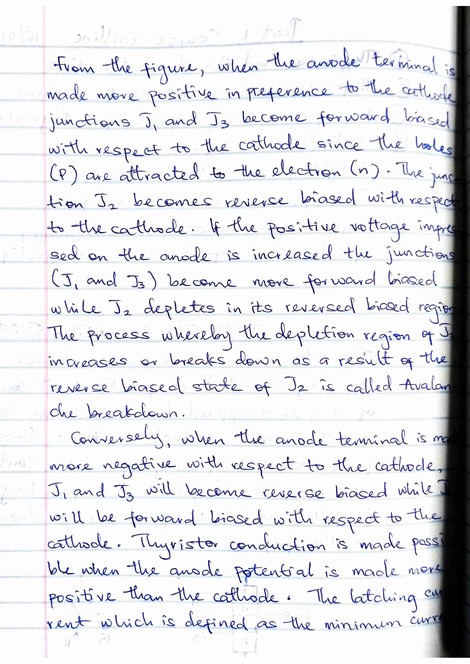 From the figure, when the anode terminal is
made more positive in preference to the cathode
junctions J₁ and J₃ become forward biased
with respect to the cathode since the holes
(P) are attracted to the electron (n). The junc
tion J₂ becomes reverse biased with respect
to the cathode. If the positive voltage impres
sed on the anode is increased the junctions
(J₁ and J₃) become more forward biased
while J₂ depletes in its reversed biased region
The process whereby the depletion region of J₂
increases or breaks down as a result of the
reverse biased state of J₂ is called Avalan
che breakdown.
Conversely, when the anode terminal is ma
more negative with respect to the cathode,
J₁ and J₃ will become reverse biased while J
will be forward biased with respect to the
cathode. Thyristor conduction is made possi
ble when the anode potential is made more
positive than the cathode. The latching cur
rent which is defined as the minimum curre